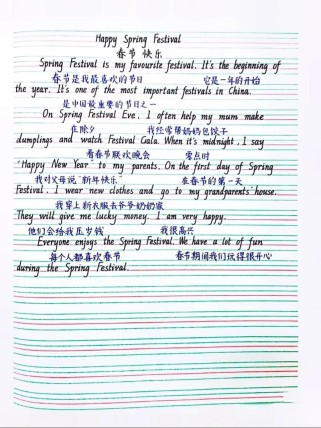 Happy Spring Festival
春节 快乐
Spring Festival is my favourite festival. It's the beginning of
春节是我最喜欢的节日 它是一年的开始
the year. It's one of the most important festivals in China.
是中国最重要的节日之一
On Spring Festival Eve, I often help my mum make
在除夕 我经常帮妈妈包饺子
dumplings and watch Festival Gala. When it's midnight, I say
看春节联欢晚会 零点时
"Happy New Year" to my parents. On the first day of Spring
我对父母说"新年快乐" 在春节的第一天
Festival, I wear new clothes and go to my grandparents' house.
我穿上新衣服去爷爷奶奶家
They will give me lucky money. I am very happy.
他们会给我压岁钱 我很高兴
Everyone enjoys the Spring Festival. We have a lot of fun
每个人都喜欢春节 春节期间我们玩得很开心
during the Spring Festival.